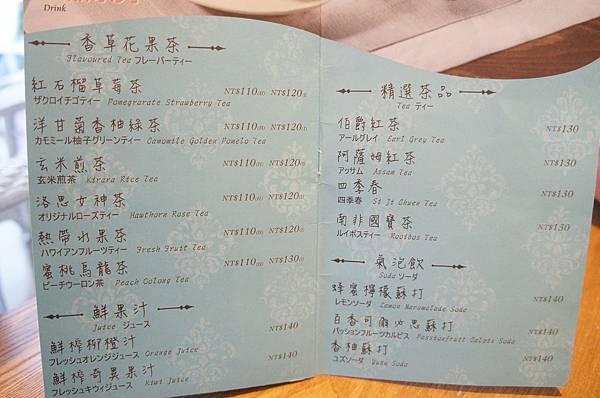 Drink
香草花果茶
Flavoured Tea フレーバーティー
紅石榴草莓茶 NT$110(H) NT$120(I)
ザクロイチゴティー Pomegrarate Strawberry Tea
洋甘菊香柚綠茶 NT$110(H) NT$120(I)
カモミール柚子グリーンティー Camomile Golden Pomelo Tea
玄米煎茶 NT$110(H) NT$120(I)
玄米煎茶 Kirara Rice Tea
洛思女神茶 NT$110(H) NT$120(I)
オリジナルローズティー Hawthorn Rose Tea
熱帶水果茶 NT$110(H) NT$120(I)
ハワイアンフルーツティー Fresh Fruit Tea
蜜桃烏龍茶 NT$110(H) NT$130(I)
ピーチウーロン茶 Peach Oolong Tea
鮮果汁
Juice ジュース
鮮榨柳橙汁 NT$140
フレッシュオレンジジュース Orange Juice
鮮榨奇異果汁 NT$140
フレッシュキウィジュース Kiwi Juice
精選茶品
Tea ティー
伯爵紅茶 NT$130
アールグレイ Earl Grey Tea
阿薩姆紅茶 NT$130
アッサム Assam Tea
四季春 NT$130
四季春 Si Ji Chwen Tea
南非國寶茶 NT$130
ルイボスティー Rooibos Tea
氣泡飲
Soda ソーダ
蜂蜜檸檬蘇打 NT$140
レモンソーダ Lemon Marmalade Soda
百香可爾必思蘇打 NT$140
パッションフルーツカルピス Passionfruit Calpis Soda
香柚蘇打 NT$140
ユズソーダ Yuzu Soda